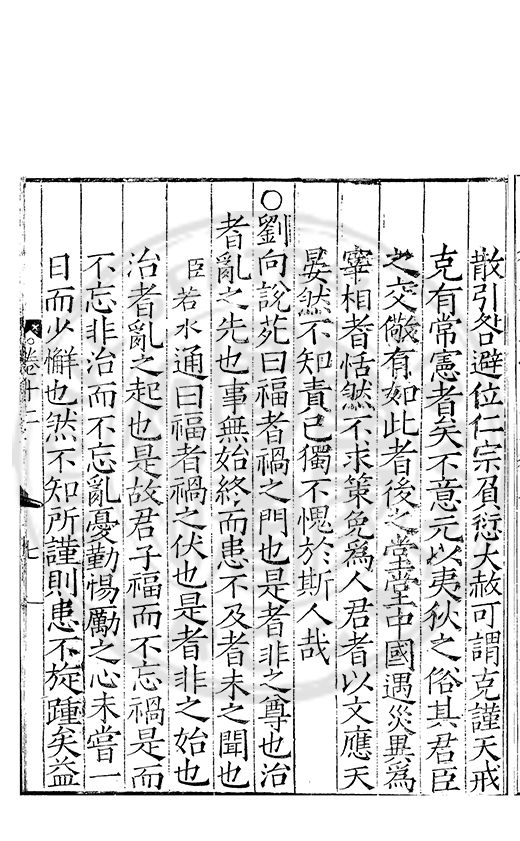 散引咎避位仁宗負愆大赦可謂克謹天戒
克有常憲者矣不意元以夷狄之俗其君臣
之交儆有如此者後之堂堂中國遇災異為
宰相者恬然不求策免為人君者以文應天
晏然不知責已獨不愧於斯人哉
○劉向說苑曰福者禍之門也是者非之尊也治
者亂之先也事無始終而患不及者未之聞也
臣若水通曰福者禍之伏也是者非之始也
治者亂之起也是故君子福而不忘禍是而
不忘非治而不忘亂憂勤惕勵之心未嘗一
日而少懈也然不知所謹則患不旋踵矣益
卷十二
七